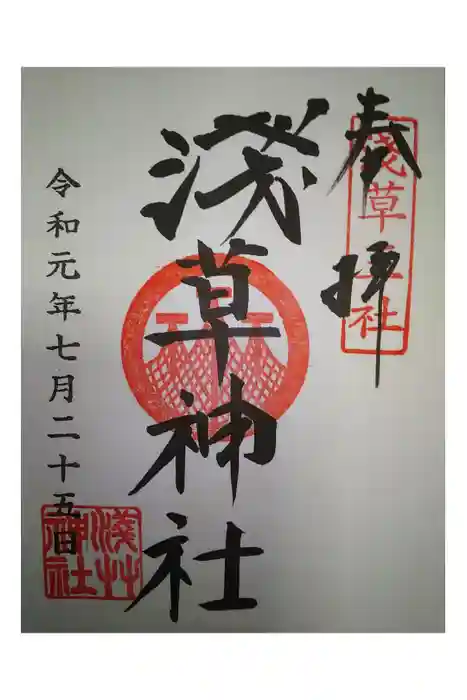 奉拝
淺草神社
令和元年七月二十五日
淺草
神社